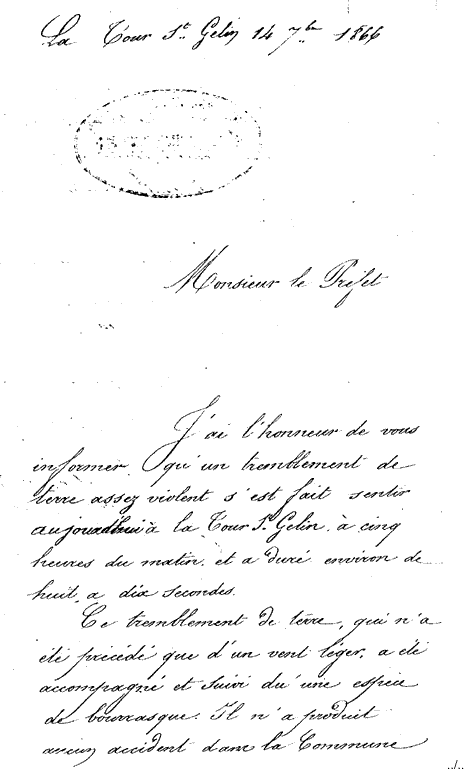 La Tour St Gelin 14 7bre 1866
Monsieur le Préfet
J'ai l'honneur de vous
informer qu'un tremblement de
terre assez violent s'est fait sentir
aujourd'hui à la Tour St Gelin à cinq
heures du matin. et a duré environ de
huit a dix secondes.
Ce tremblement de terre, qui n'a
été précédé que d'un vent léger. a été
accompagné et suivi du'une espèce
de bourrasque. Il n'a produit
aucun accident dans la Commune
../..